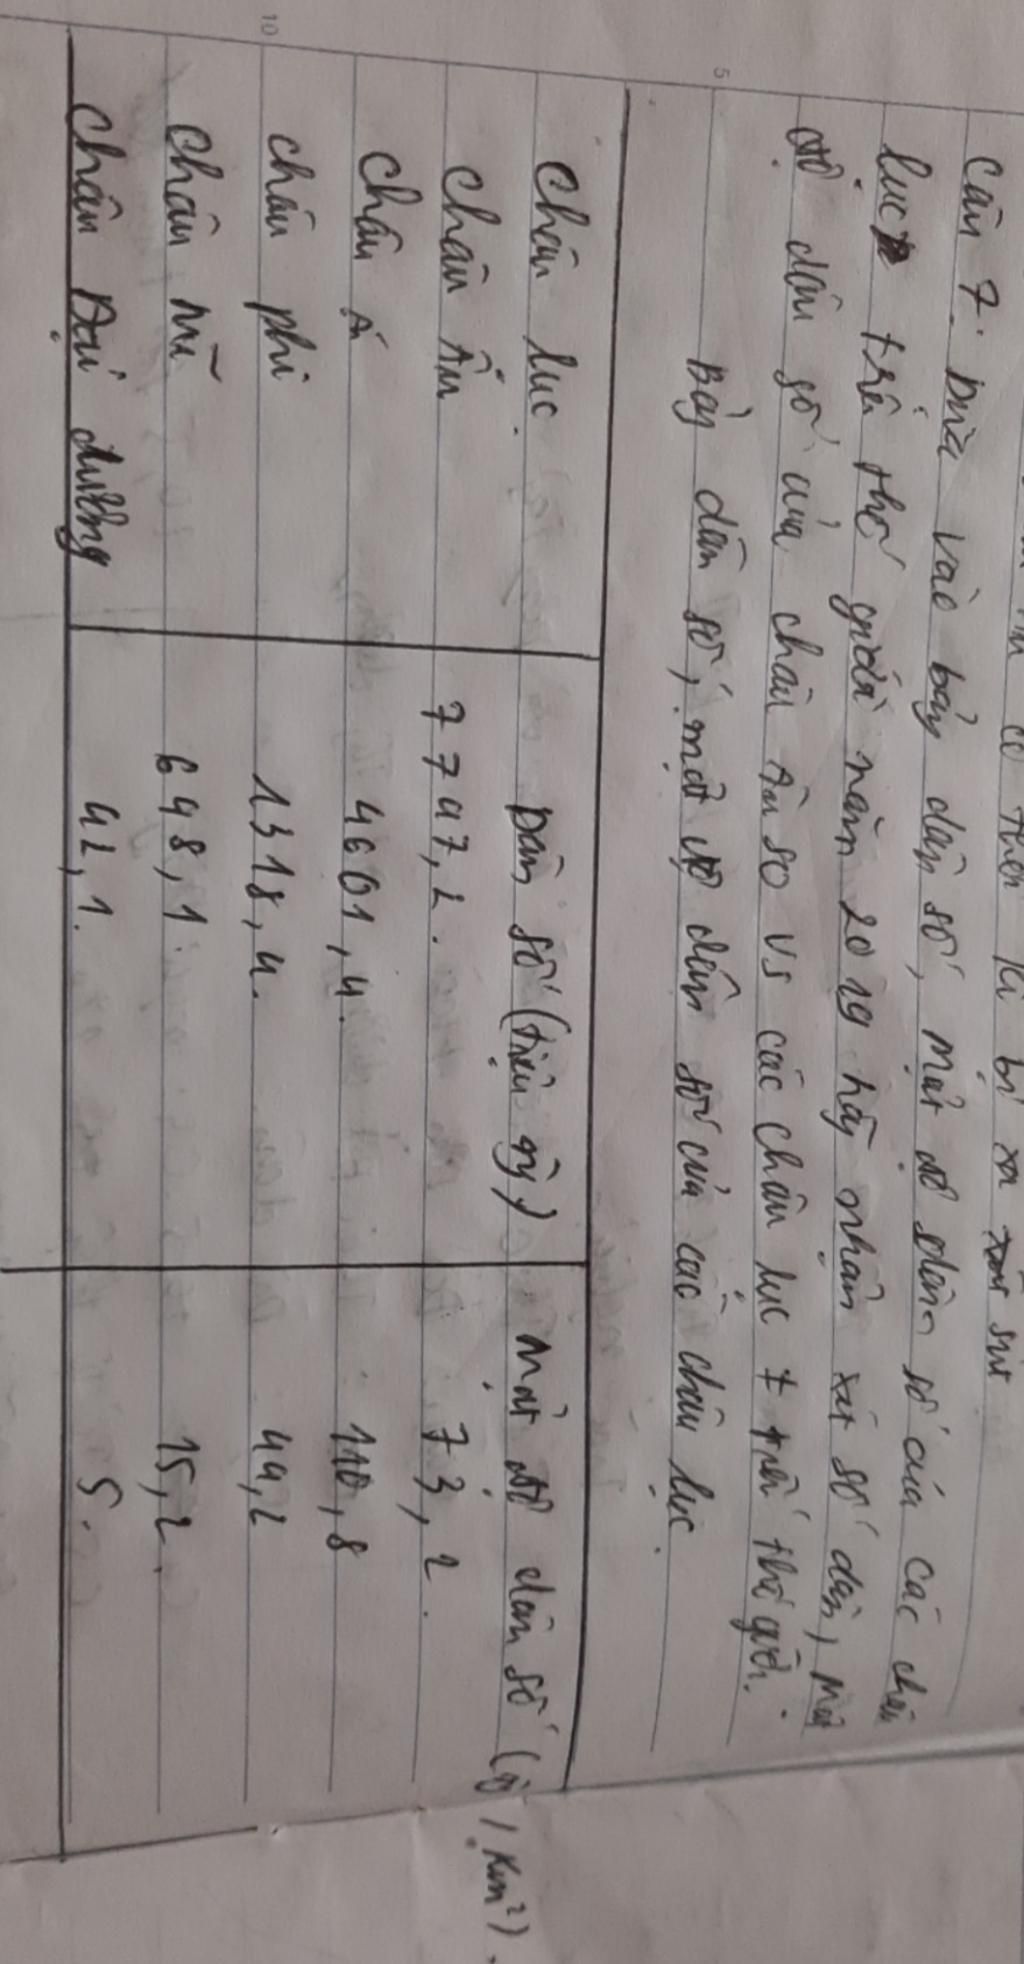 Câu 7: Dựa vào bảng dân số, mật độ dân số của các châu
lục trên thế giới năm 2019 hãy nhận xét số dân, mật
độ dân số của châu Âu so vs các châu lục ≠ trên thế giới.
Bảng dân số, mật độ dân số của các châu lục.
Châu lục Dân số (triệu ng) Mật độ dân số (ng/km²).
Châu Âu 7747,2. 73,2.
Châu Á 4601,4. 110,8
Châu phi 1318,4. 44,2
Châu Mĩ 648,1. 15,2.
Châu Đại dương 42,1. 5.
10
5